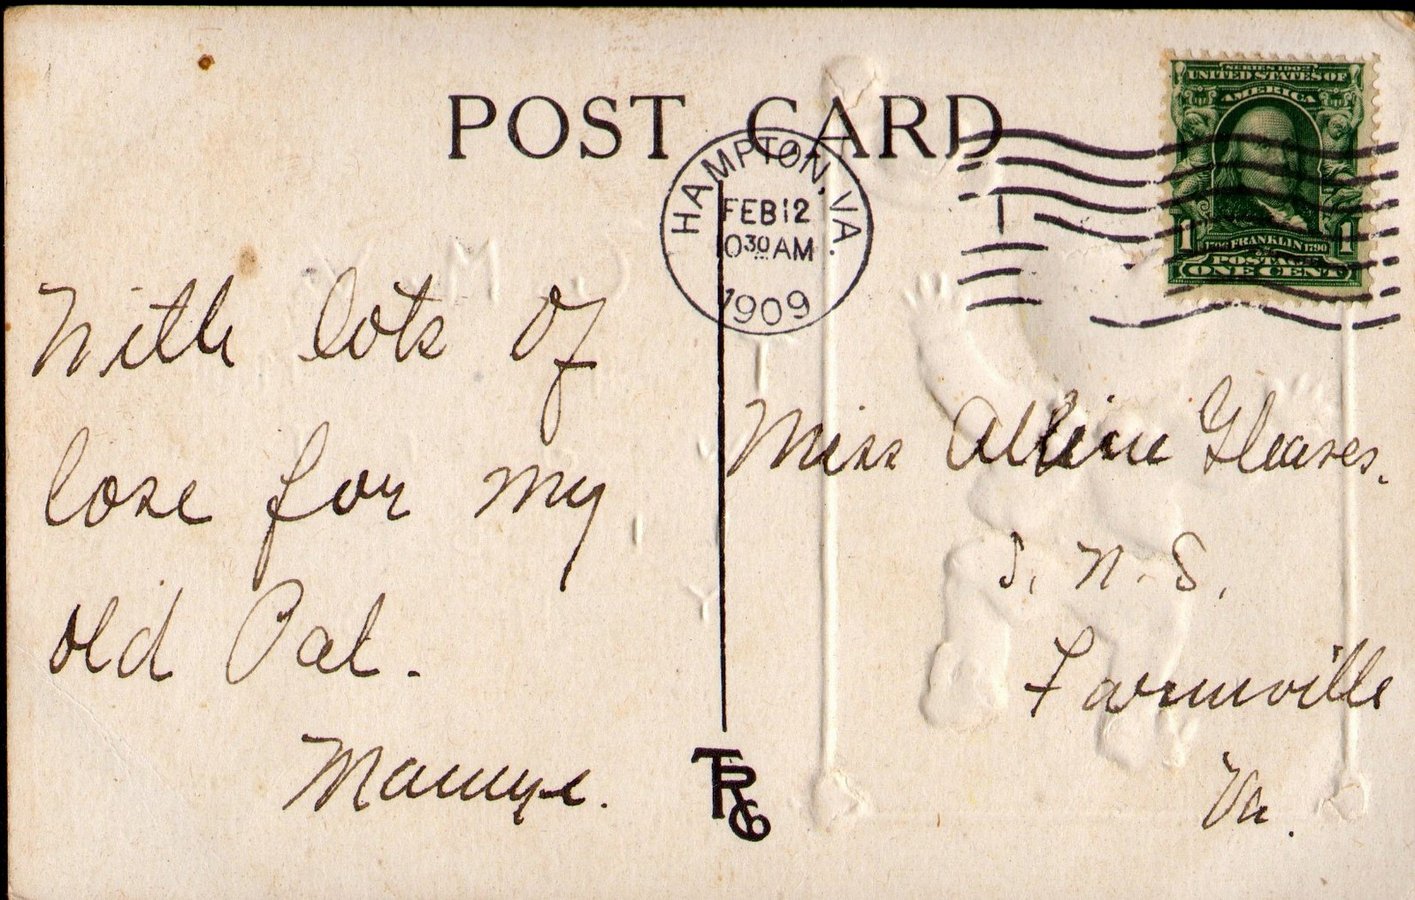 POST CARD
HAMPTON, VA.
FEB 12
10 30 AM
1909
SERIES 1902
UNITED STATES OF
AMERICA
1 1
1706 FRANKLIN 1790
POSTAGE
ONE CENT
With lots of
love for my
old Pal.
Mamye.
Miss Alline Gleaves.
S. N. S.
Farmville
Va.